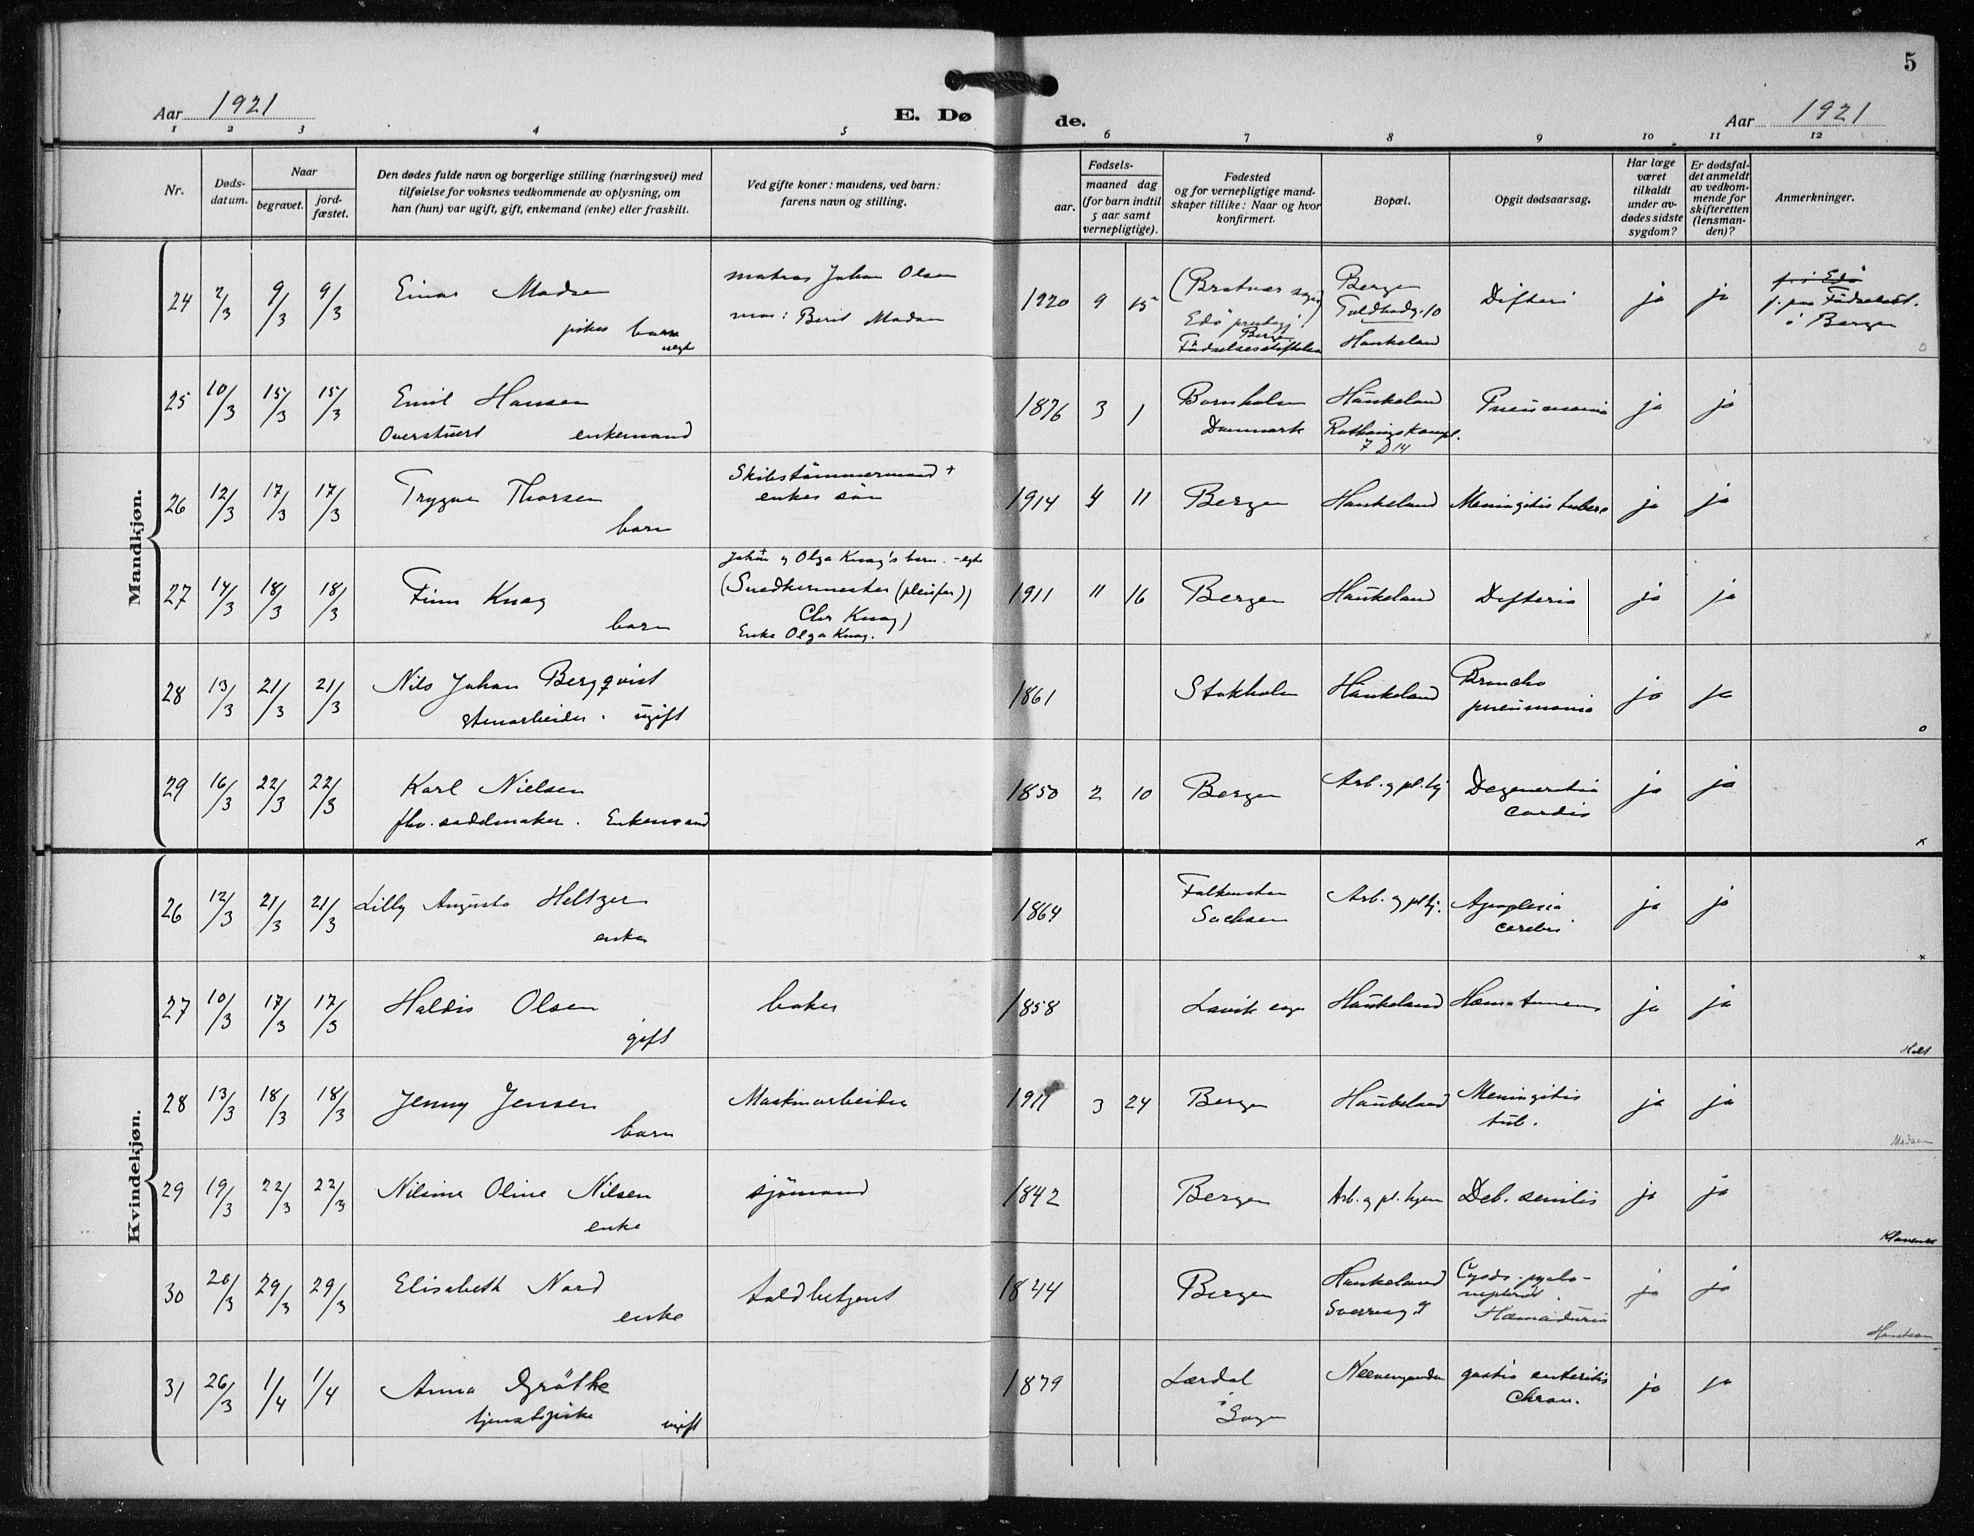 5
Aar 1921
E. Dø de.
Aar 1921
1 2 3 4 5 6 7 8 9 10 11 12
Nr.
Døds-
datum.
Naar
begravet.
jord-
fæstet.
Den dødes fulde navn og borgerlige stilling (næringsvei) med
tilføielse for voksnes vedkommende av oplysning, om
han (hun) var ugift, gift, enkemand (enke) eller fraskilt.
Ved gifte koner: mandens, ved barn:
farens navn og stilling.
Fødsels-
aar.
maaned dag
(for barn indtil
5 aar samt
vernepligtige).
Fødested
og for vernepligtige mand-
skaper tillike: Naar og hvor
konfirmert.
Bopæl.
Opgit dødsaarsag.
Har læge
været
tilkaldt
under av-
dødes sidste
sygdom?
Er dødsfal-
det anmeldt
av vedkom-
mende for
skifteretten
(lensman-
den)?
Anmerkninger.
Mandkjøn.
24 2/3 9/3 9/3 Einar Madsen
pikes barn
uegte
matros Johan Olsen
mor: Berit Madsen
1920 9 15
(Bratvær sogn)
Edö prestegj.
Bergen
Fødselsstiftelsen
Bergen
Toldbodg. 10
Haukeland
Difteri ja ja
p. i Edö
f. paa Fødselsst.
i Bergen
o
25 10/3 15/3 15/3 Emil Hansen
Overstuert enkemand
1876 3 1
Bornholm
Danmark
Haukeland
7 D 14
Pneumonia ja ja
x
26 12/3 17/3 17/3 Trygve Thorsen
barn
Skibstömmermand +
enkes sön
1914 4 11 Bergen Haukeland Meningitis tuberc ja ja
x
27 14/3 18/3 18/3 Finn Knag
barn
Johan og Olga Knag's barn. - egte
(Snedkermester (pleiefar))
Chr Knag)
Enke Olga Knag.
1911 11 16 Bergen Haukeland Difteria ja ja
x
28 13/3 21/3 21/3 Nils Johan Bergqvist
stenarbeider. ugift
1861 Stokholm Haukeland
Broncho
pneumonia
ja ja
o
29 16/3 22/3 22/3 Karl Nielsen
fhv. sadelmaker. Enkemand
1850 2 10 Bergen Arb. og pl. hj
Degeneratio
cordis
ja ja
x
Kvindekjøn.
26 12/3 21/3 21/3 Lilly Augusta Heltzer
enke
1864
Falkenstein
Sachsen
Arb. og pl hj.
Apoplexia
cerebri
ja ja
x
27 10/3 17/3 17/3 Haldis Olsen
gift
baker
1858 Lavik sogn Haukeland ja ja
Holt
28 13/3 18/3 18/3 Jenny Jensen
barn
Maskinarbeider
1911 3 24 Bergen Haukeland
Meningitis
tub.
ja ja
Madsen
29 19/3 22/3 22/3 Nilsine Oline Nilsen
enke
sjömand
1842 Bergen Arb. og pl. hjem Deb. senilis ja ja
Klaveness
30 20/3 29/3 29/3 Elisabeth Nord
enke
toldbetjent
1844 Bergen
Haukeland
Sverresg. 9
Cysto-pyelo-
nephrit.
Hæmaturia
ja ja
31 26/3 1/4 1/4 Anna Gröthe
tjenestepike ugift
1879
Lærdal
i
Sogn
Neevengaarden
gastro enteritis
chron.
ja ja